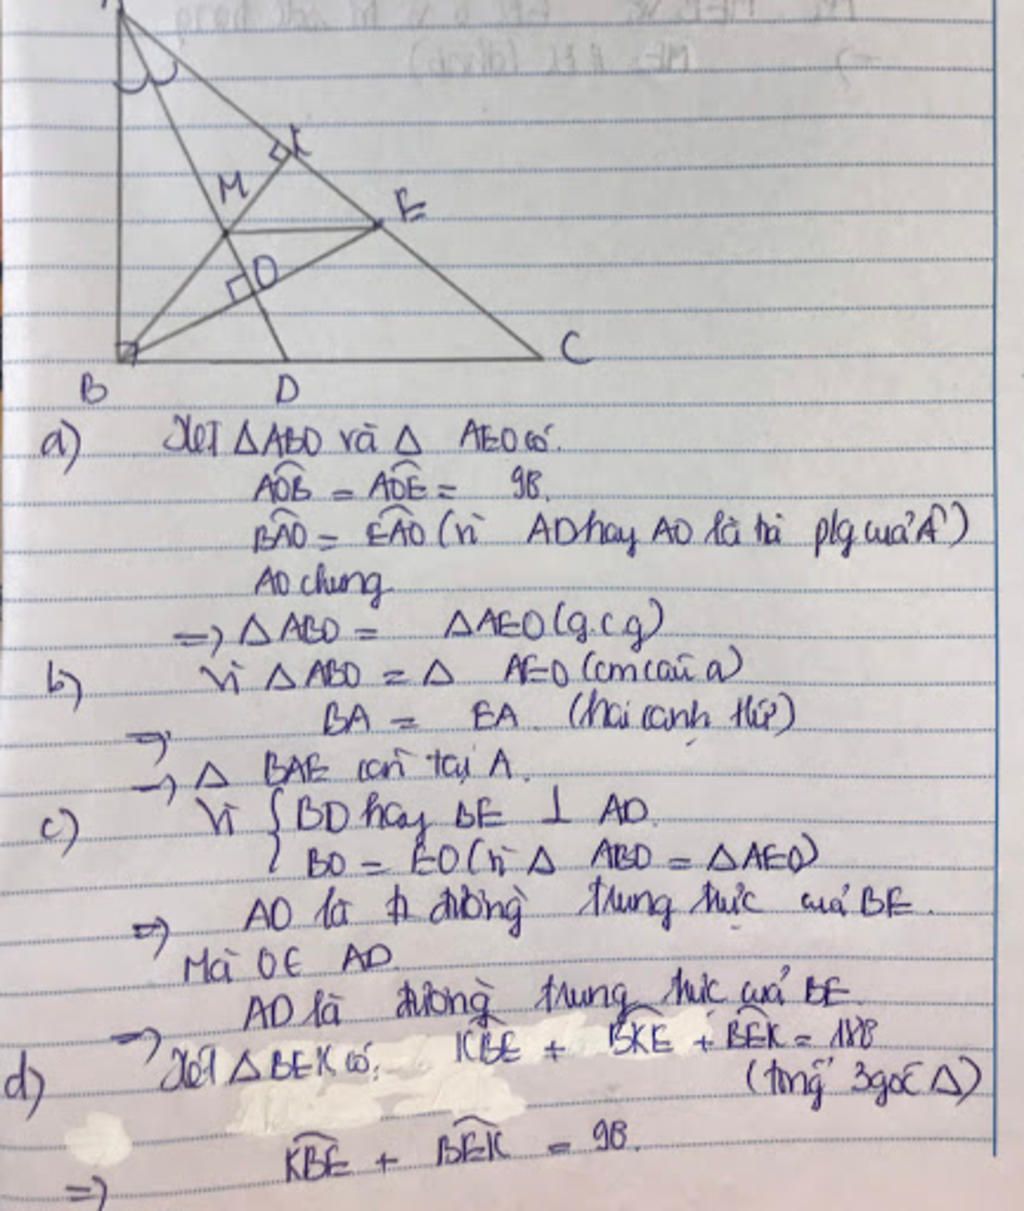 K
M
E
O
C
B
D
a) Xét △ABO và △ AEO có:
AÔB = AÔE = 90.
BÂO = EÂO (vì AD hay AO là tia p/g của Â)
AO chung
=> △ABO = △AEO (g.c.g)
b) Vì △ABO = △ AEO (cm câu a)
=> BA = EA (hai cạnh t/ứ)
=> △ BAE cân tại A.
c) Vì { BO hay BE ⊥ AO.
BO = EO (vì △ ABO = △AEO)
=> AO là đường trung trực của BE.
Mà O ∈ AD.
=> AD là đường trung trực của BE.
d) Xét △BEK có: KBE + BKE + BEK = 180
(tổng 3 góc △)
=> KBE + BEK = 90.